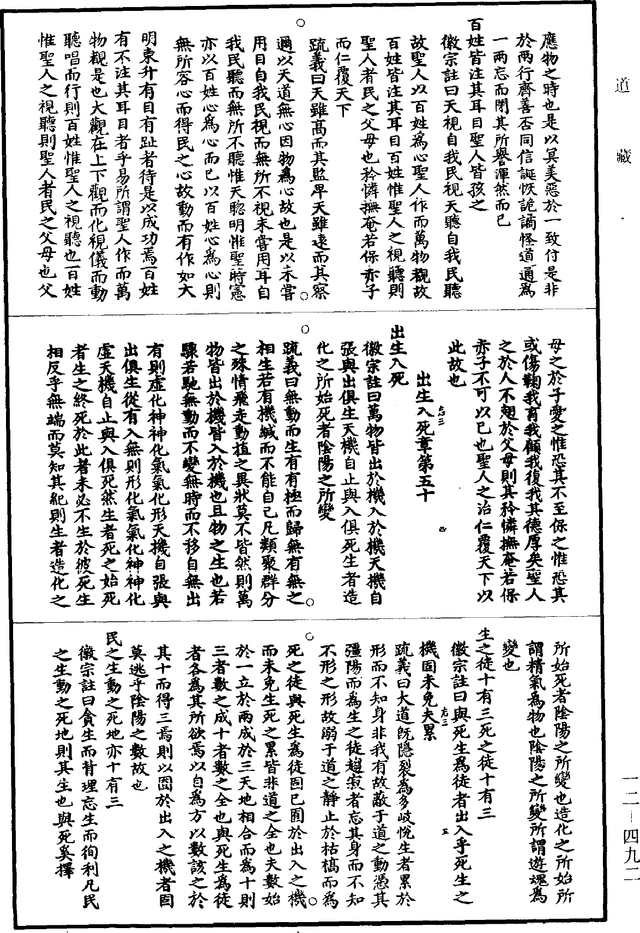 道藏
應物之時也是以冥美惡於一致付是非
於兩行齊善否同信誕恢詭譎怪道通為
一兩忘而閉其所譽渾然而已
百姓皆注其耳目聖人皆孩之
徽宗註曰天視自我民視天聽自我民聽
故聖人以百姓為心聖人作而萬物覩故
百姓皆注其耳目百姓惟聖人之視聽則
聖人者民之父母也矜憐撫奄若保赤子
而仁覆天下
疏義曰天雖髙而其監卑天雖遠而其察
邇以天道無心因物為心故也是以未嘗
用目自我民視而無所不視未嘗用耳自
我民聽而無所不聽惟天聦明惟聖時憲
亦以百姓心為心而已以百姓心為心則
無所容心而得民之心故動而有作如大
明東升有目有趾者待是以成功焉百姓
有不注其耳目者乎易所謂聖人作而萬
物覩是也大觀在上下觀而化視儀而動
聽唱而行則百姓惟聖人之視聽也百姓
惟聖人之視聽則聖人者民之父母也父
母之於子愛之惟恐其不至保之惟恐其
或傷鞠我育我顧我復我其德厚矣聖人
之於人不翅於父母則其矜憐撫奄若保
赤子不可以已也聖人之治仁覆天下以
此故也
出生入死章第五十
出生入死
徽宗註曰萬物皆出於機入於機天機自
張與出俱生天機自止與入俱死生者造
化之所始死者陰陽之所變
疏義曰無動而生有有極而歸無有無之
相生若有機緘而不能自己凡類聚群分
之殊情飛走動植之異狀莫不皆然則萬
物皆出於機皆入於機也且物之生也若
驟若馳無動而不變無時而不移自無出
有則虛化神神化氣氣化形天機自張與
出俱生從有入無則形化氣氣化神神化
虛天機自止與入俱死然生者死之始死
者生之終死於此者未必不生於彼死生
相反乎無端而莫知其紀則生者造化之
所始死者陰陽之所變也造化之所始所
謂精氣為物也陰陽之所變所謂遊魂為
變也
生之徒十有三死之徒十有三
徽宗註曰與死生為徒者出入乎死生之
機固未免夫累
疏義曰大道既隱裂為多岐悅生者累於
形而不知身非我有故蔽于道之動憑其
彊陽而為生之徒趨寂者忘其身而不知
不形之形故溺于道之靜止於枯槁而為
死之徒與死生為徒固已囿於出入之機
而未免生死之累皆非道之全也夫數始
於一立於兩成於三天地相合而為十則
三者數之成十者數之全也與死生為徒
者各為其所欲焉以自為方以數該之於
其十而得三焉則以囿於出入之機者固
莫逃乎陰陽之數故也
民之生動之死地亦十有三
徽宗註曰貪生而背理忘生而徇利凡民
之生動之死地則其生也與死奚擇
一二-四九二